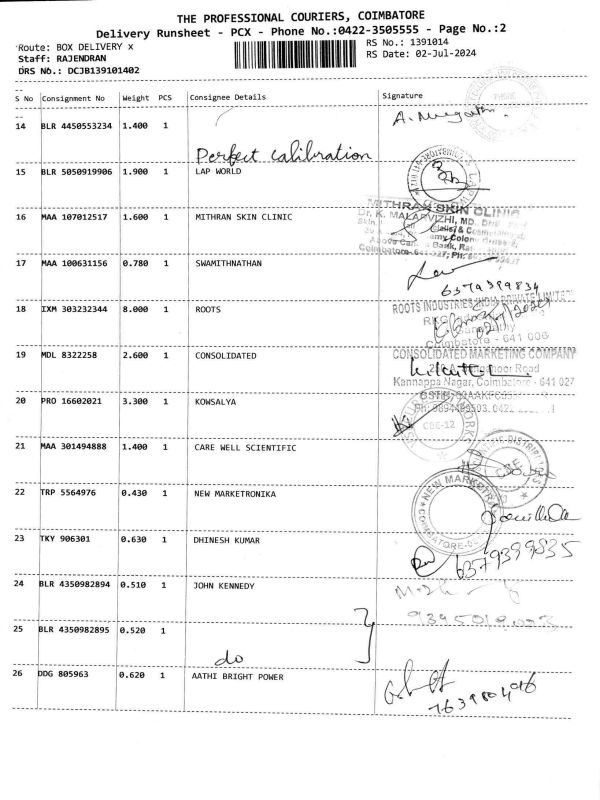 THE PROFESSIONAL COURIERS, COIMBATORE
Delivery Runsheet - PCX - Phone No.:0422-3505555 - Page No.:2
Route: BOX DELIVERY x
RS No.: 1391014
Staff: RAJENDRAN
RS Date: 02-Jul-2024
DRS No.: DCJB139101402
S No Consignment No Weight PCS Consignee Details Signature
14 BLR 4450553234 1.400 1
Perfect calibration
15 BLR 5050919906 1.900 1 LAP WORLD
16 MAA 107012517 1.600 1 MITHRAN SKIN CLINIC
MITHRAN SKIN CLINIC
Dr. K. MALARVIZHI, MD.
17 MAA 100631156 0.780 1 SWAMITHNATHAN
6379399834
18 IXM 303232344 8.000 1 ROOTS
ROOTS INDUSTRIES INDIA PRIVATE LIMITED
Coimbatore - 641 006
19 MDL 8322258 2.600 1 CONSOLIDATED
CONSOLIDATED MARKETING COMPANY
Road
Kannappa Nagar, Coimbatore - 641 027
20 PRO 16602021 3.300 1 KOWSALYA
CBE-12
21 MAA 301494888 1.400 1 CARE WELL SCIENTIFIC
CBE
22 TRP 5564976 0.430 1 NEW MARKETRONIKA
NEW MARKETRONIKA
23 TKY 906301 0.630 1 DHINESH KUMAR
6379399835
24 BLR 4350982894 0.510 1 JOHN KENNEDY
25 BLR 4350982895 0.520 1
do
26 DDG 805963 0.620 1 AATHI BRIGHT POWER